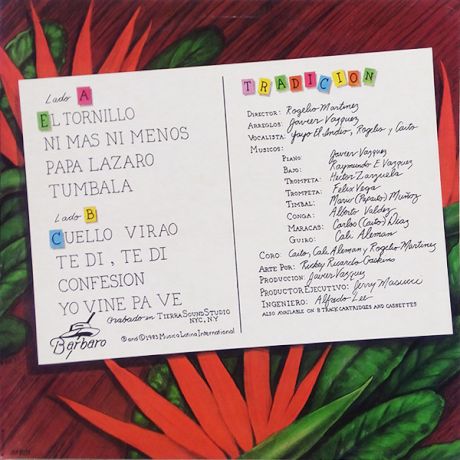 Lado A
EL TORNILLO
NI MAS NI MENOS
PAPA LAZARO
TUMBALA
Lado B
CUELLO VIRAO
TE DI, TE DI
CONFESION
YO VINE PA VE
Grabado en TIERRA SOUND STUDIO
NYC, NY
Bárbaro
℗ and © 1983 MUSICA LATINA INTERNATIONAL
TRADICION
DIRECTOR: Rogelio Martinez
ARREGLOS: Javier Vazquez
VOCALISTA: Yayo El Indio, Rogelio y Caito
MUSICOS:
PIANO: Javier Vazquez
BAJO: Raymundo E Vazquez
TROMPETA: Hector Zarzuela
TROMPETA: Felix Vega
TIMBAL: Mario (Papaito) Muñoz
CONGA: Alberto Valdez
MARACAS: Carlos (Caito) Diaz
GUIRO: Cali Aleman
CORO: Caito, Cali Aleman y Rogelio Martinez
ARTE POR: Ricky Ricardo Gaskins
PRODUCCION: Javier Vazquez
PRODUCTOR EJECUTIVO: Jerry Masucci
INGENIERO: Alfredo Lee
ALSO AVAILABLE ON 8 TRACK CARTRIDGES AND CASSETTES